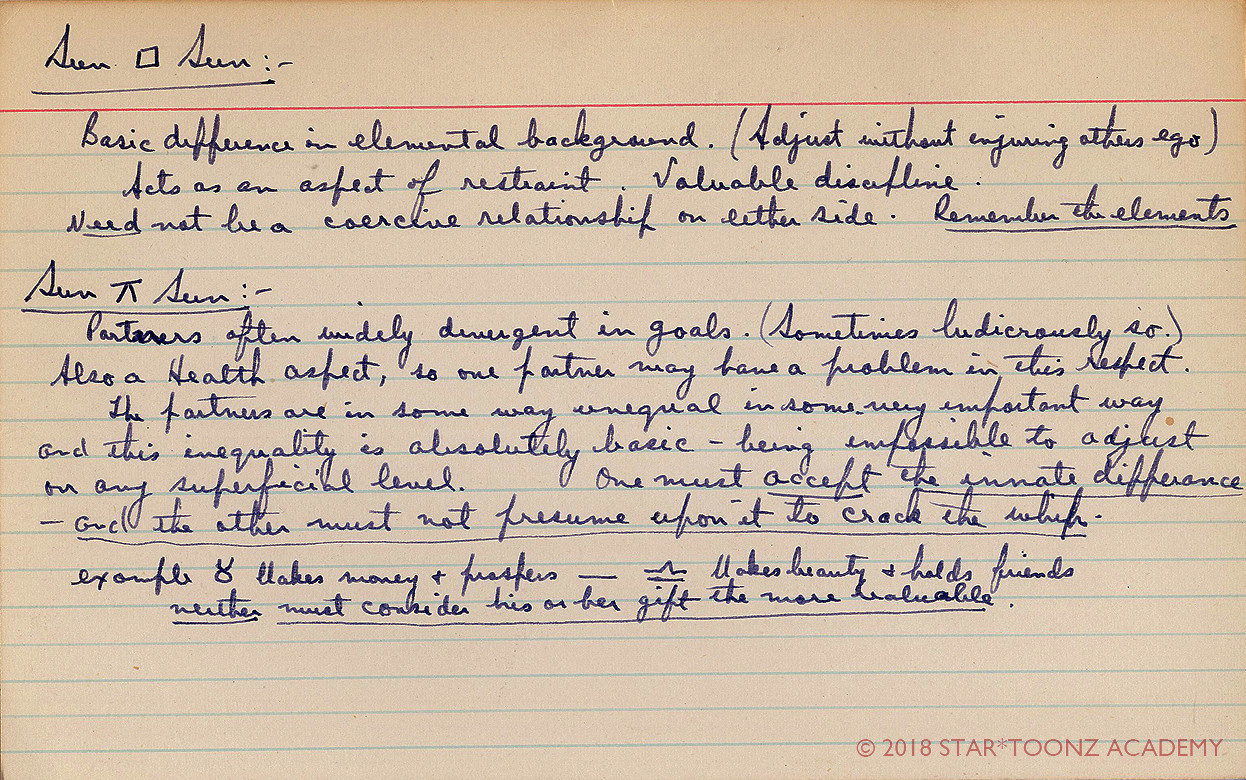 Sun □ Sun :-
Basic difference in elemental background. (Adjust without injuring others ego)
Acts as an aspect of restraint. Valuable discipline.
Need not be a coercive relationship on either side. Remember the elements
Sun ⚻ Sun :-
Partners often widely divergent in goals. (Sometimes ludicrously so.)
Also a Health aspect, so one partner may have a problem in this respect.
The partners are in some way unequal in some very important way
and this inequality is absolutely basic - being impossible to adjust
on any superficial level. One must accept the innate differance
- and the other must not presume upon it to crack the whip.
example ♉ Makes money + prospers — ♎ Makes beauty + holds friends
neither must consider his or her gift the more valuable.
© 2018 STAR*TOONZ ACADEMY